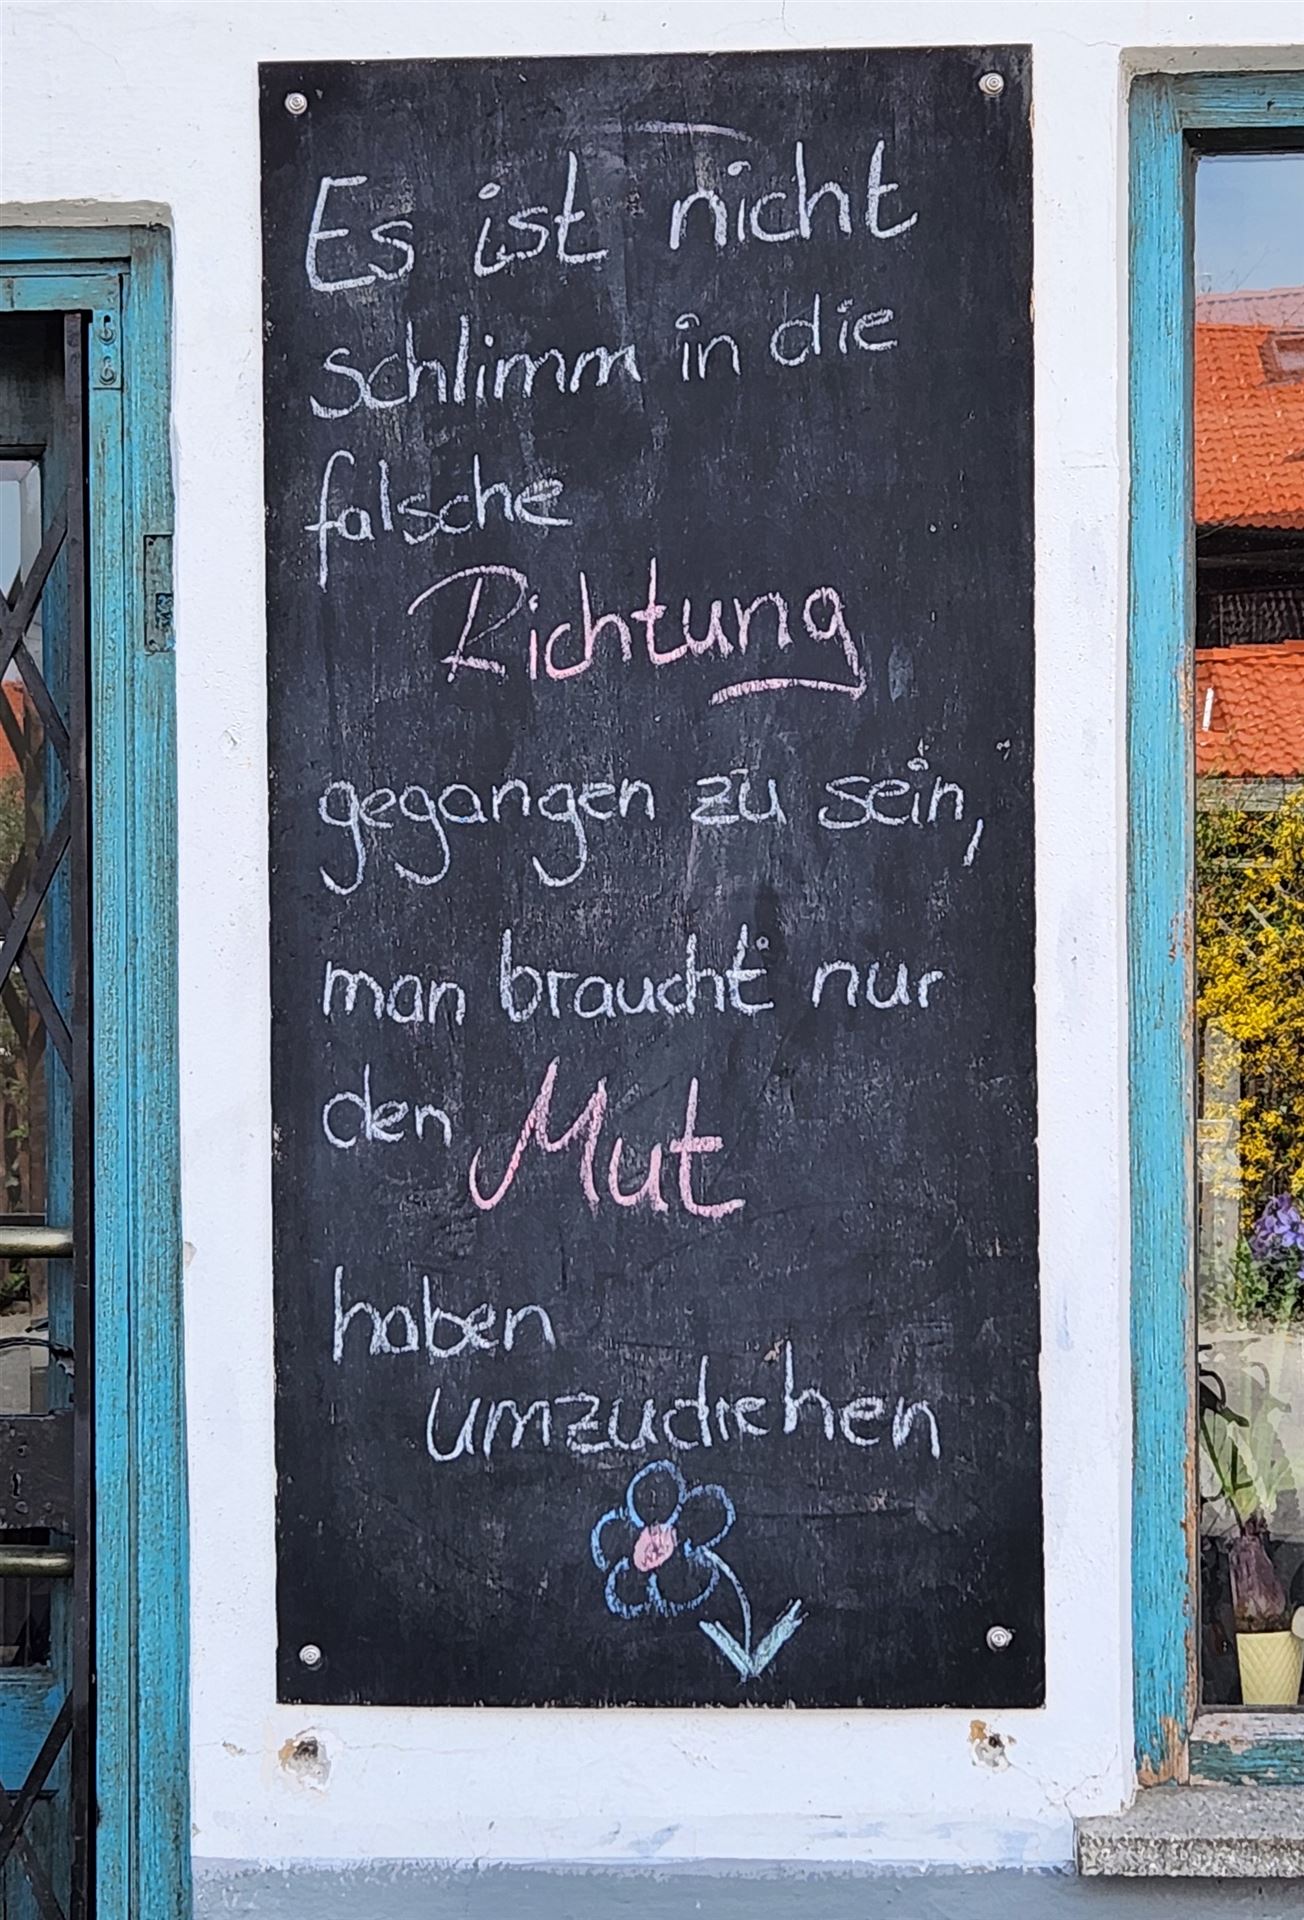 Es ist nicht
schlimm in die
falsche
Richtung
gegangen zu sein,
man braucht nur
den Mut
haben
umzudrehen